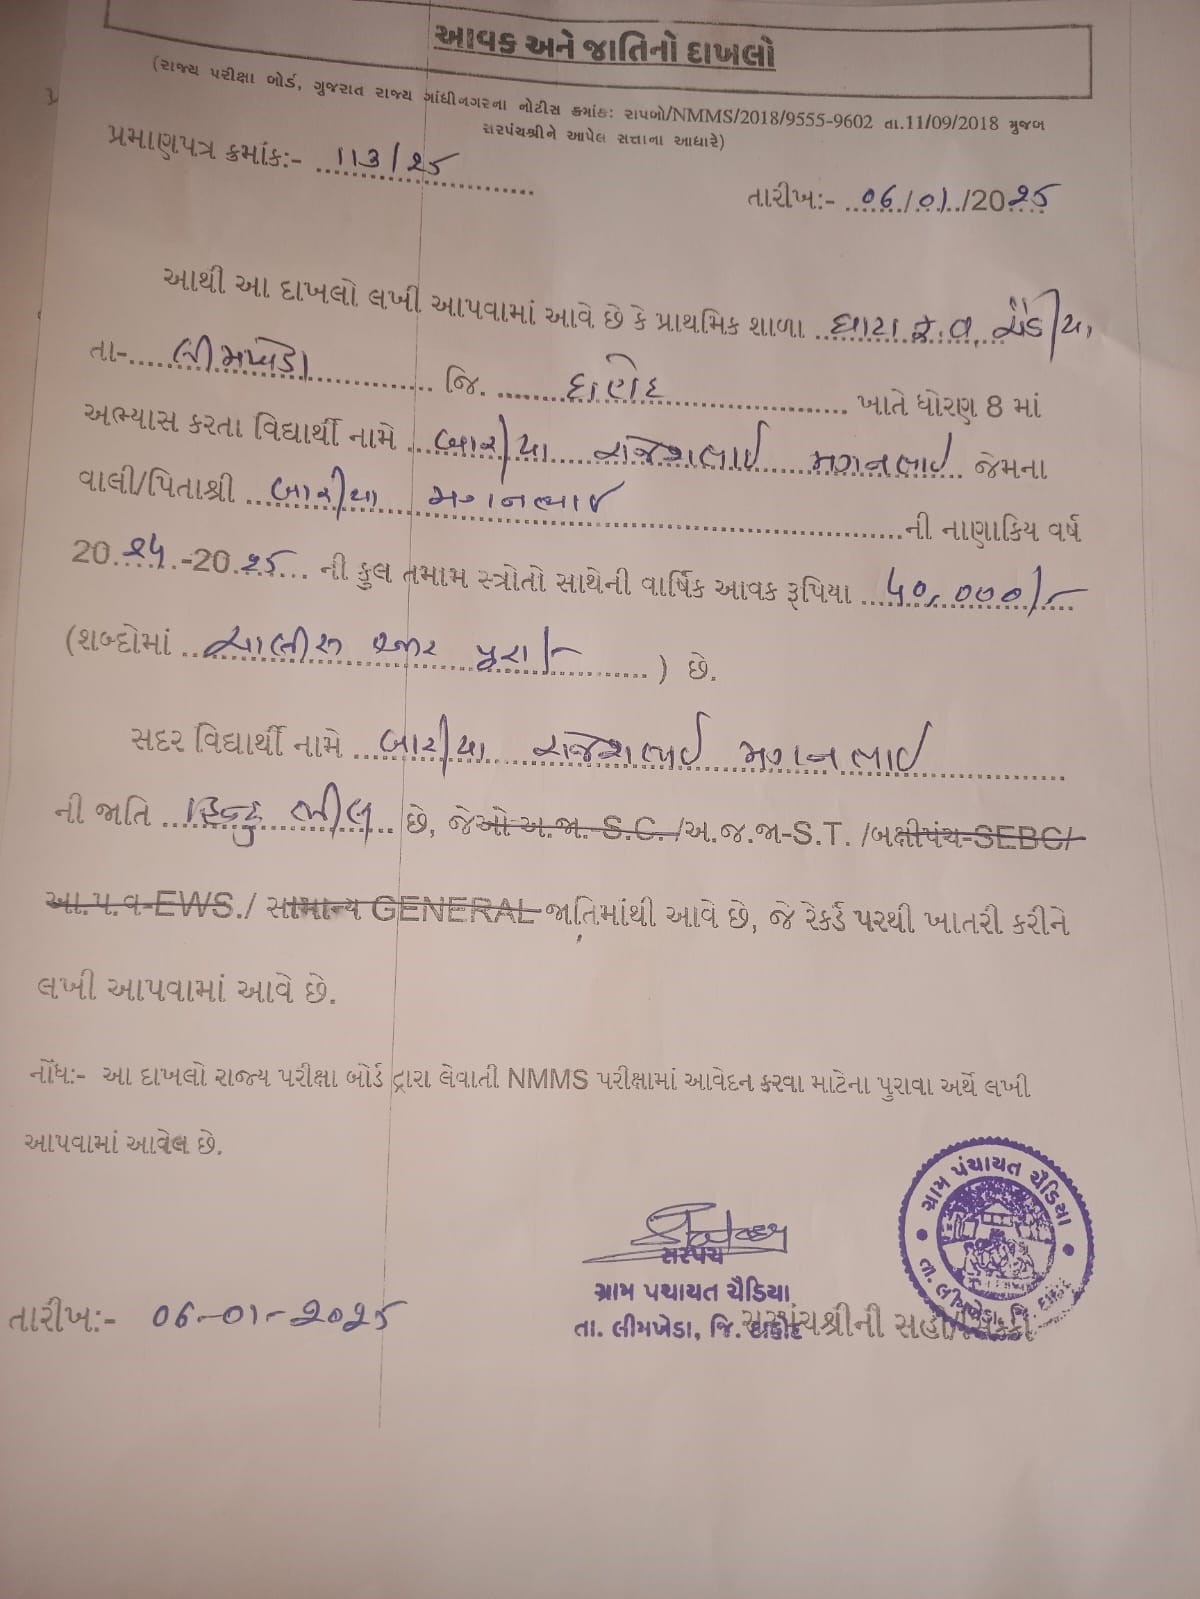 આવક અને જાતિનો દાખલો
(રાજ્ય પરીક્ષા બોર્ડ, ગુજરાત રાજ્ય ગાંધીનગરના નોટીસ ક્રમાંક: રાપબો/NMMS/2018/9555-9602 તા.11/09/2018 મુજબ
સરપંચશ્રીને આપેલ સત્તાના આધારે)
પ્રમાણપત્ર ક્રમાંક:- ૧૧૩/૨૫
તારીખ:- ૦૬/૦૧/20૨૫
આથી આ દાખલો લખી આપવામાં આવે છે કે પ્રાથમિક શાળા
તા-.... લીમખેડા જિ. દાહોદ ખાતે ધોરણ 8 માં
અભ્યાસ કરતા વિદ્યાર્થી નામે બારીયા રાજેશભાઈ મગનભાઈ જેમના
વાલી/પિતાશ્રી બારીયા મગનભાઈ ની નાણાકિય વર્ષ
20૨૪-20૨૫ ની કુલ તમામ સ્ત્રોતો સાથેની વાર્ષિક આવક રૂપિયા ૪૦,૦૦૦/-
(શબ્દોમાં ચાલીસ હજાર પુરા/- ) છે.
સદર વિદ્યાર્થી નામે બારીયા રાજેશભાઈ મગનભાઈ
ની જાતિ હિન્દુ ભીલ છે, જેઓ અ.જા. S.C. /અ.જ.જા-S.T. /બક્ષીપંચ-SEBC/
આ.પ.વ-EWS./ સામાન્ય GENERAL જાતિમાંથી આવે છે, જે રેકર્ડ પરથી ખાતરી કરીને
લખી આપવામાં આવે છે.
નોંધ:- આ દાખલો રાજ્ય પરીક્ષા બોર્ડ દ્વારા લેવાતી NMMS પરીક્ષામાં આવેદન કરવા માટેના પુરાવા અર્થે લખી
આપવામાં આવેલ છે.
ગ્રામ પંચાયત ચૈડિયા
તા. લીમખેડા, જિ. દાહોદ
સરપંચ
ગ્રામ પંચાયત ચૈડિયા
તા. લીમખેડા, જિ. દાહોદ
તારીખ:- ૦૬-૦૧-૨૦૨૫
સરપંચશ્રીની સહી/સિક્કો